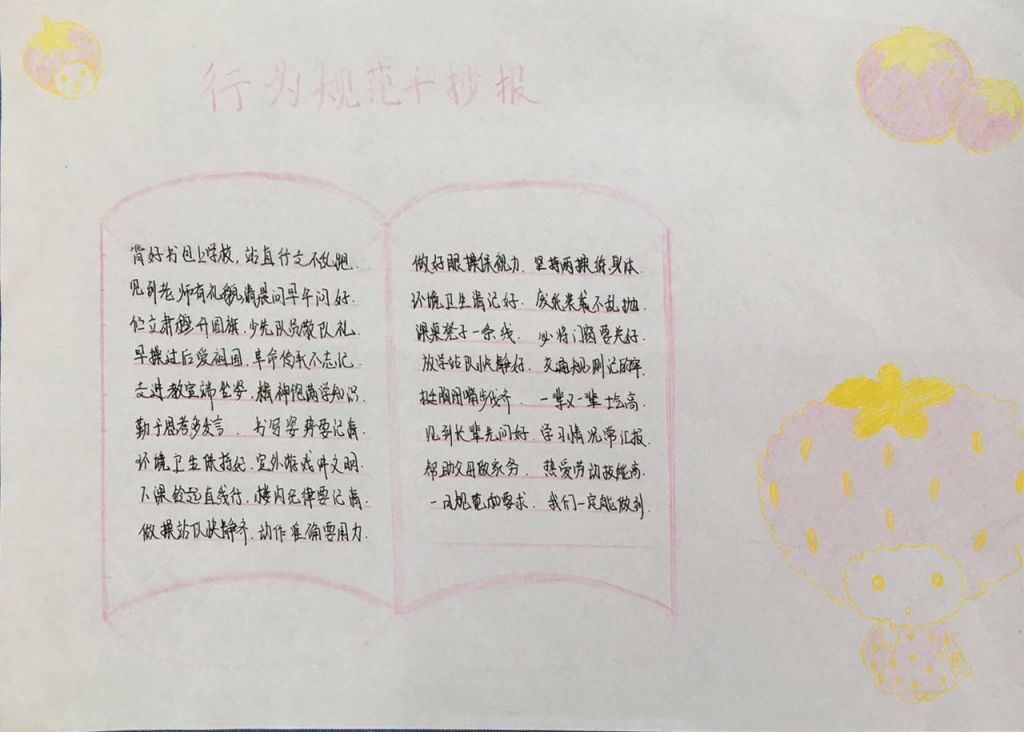 行为规范手抄报
背好书包上学校，站直行走不乱跑.
见到老师有礼貌，清晨问早午问好.
伫立肃穆升国旗，少先队员敬队礼.
早操过后爱祖国，革命传承不忘记.
走进教室端坐姿，精神饱满学知识.
勤于思考多发言. 书写姿势要记清.
环境卫生保持好，室外游戏讲文明.
下课检起直线行，楼内纪律要记清.
做操站队快静齐，动作准确要用力.
做好眼操保视力，坚持两操练身体.
环境卫生清记好. 废纸杂装不乱抛.
课桌凳子一条线. 必将门窗要关好.
放学站队快静好. 交通规则记的牢.
挺胸闭嘴步伐齐. 一辈又一辈士气高.
见到长辈先问好. 学习情况常汇报.
帮助父母做家务. 热爱劳动技能高.
一日规范的要求. 我们一定能做到.